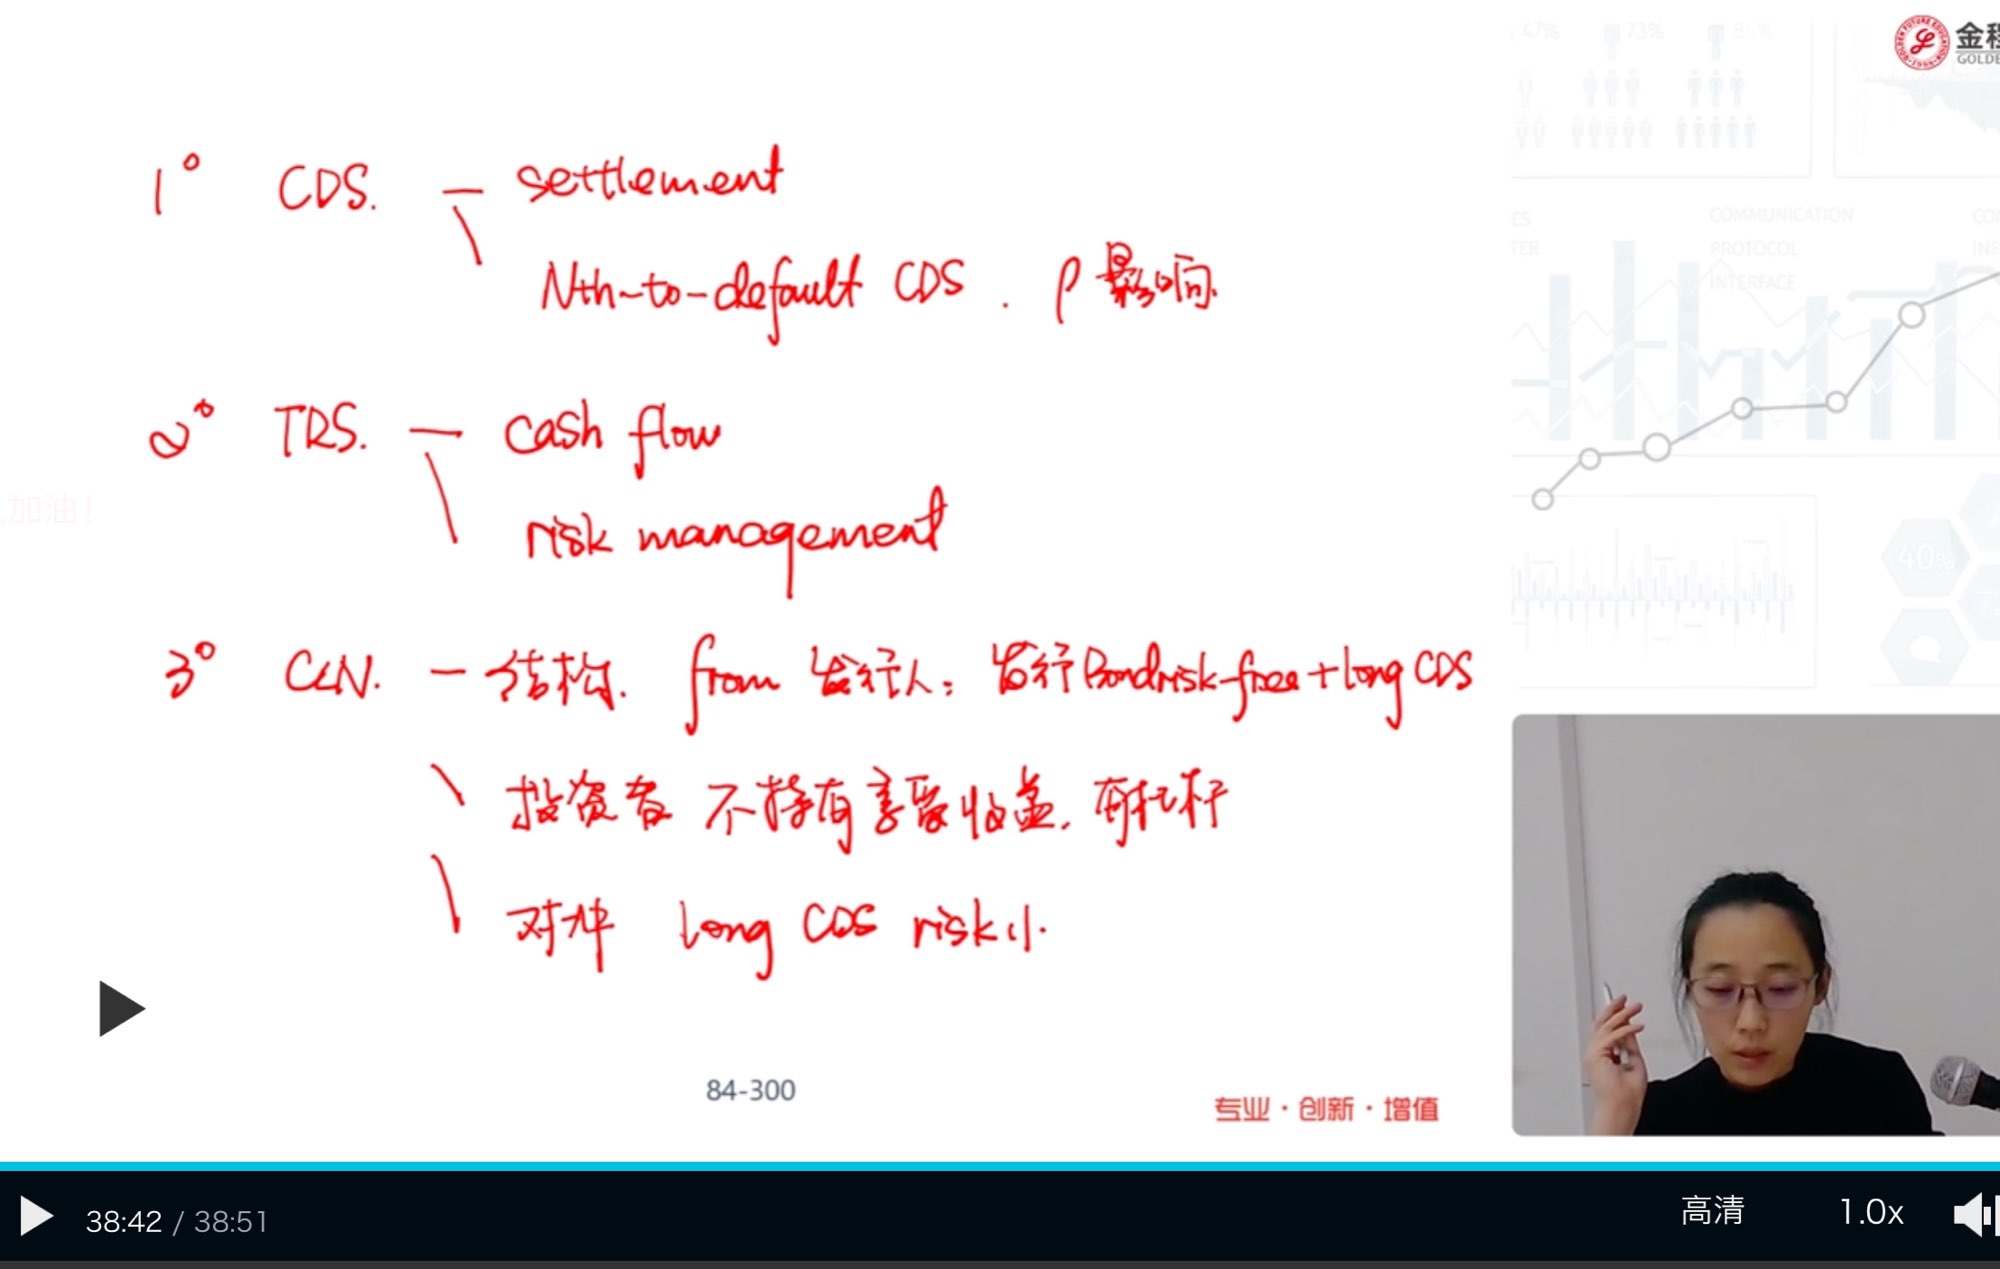 47% 73%
金程
GOLDE
1° CDS. — settlement
Nth-to-default CDS. ρ 影响
ES COMMUNICATION CO
TER PROTOCOL INF
INTERFACE
2° TRS. — cash flow
risk management
加油!
40%
3° CLN. — 结构. from 发行人: 发行Bond risk-free + long CDS
投资者 不持有享受收益. 有杠杆
对冲 long CDS risk小.
84-300
专业·创新·增值
38:42 / 38:51 高清 1.0x